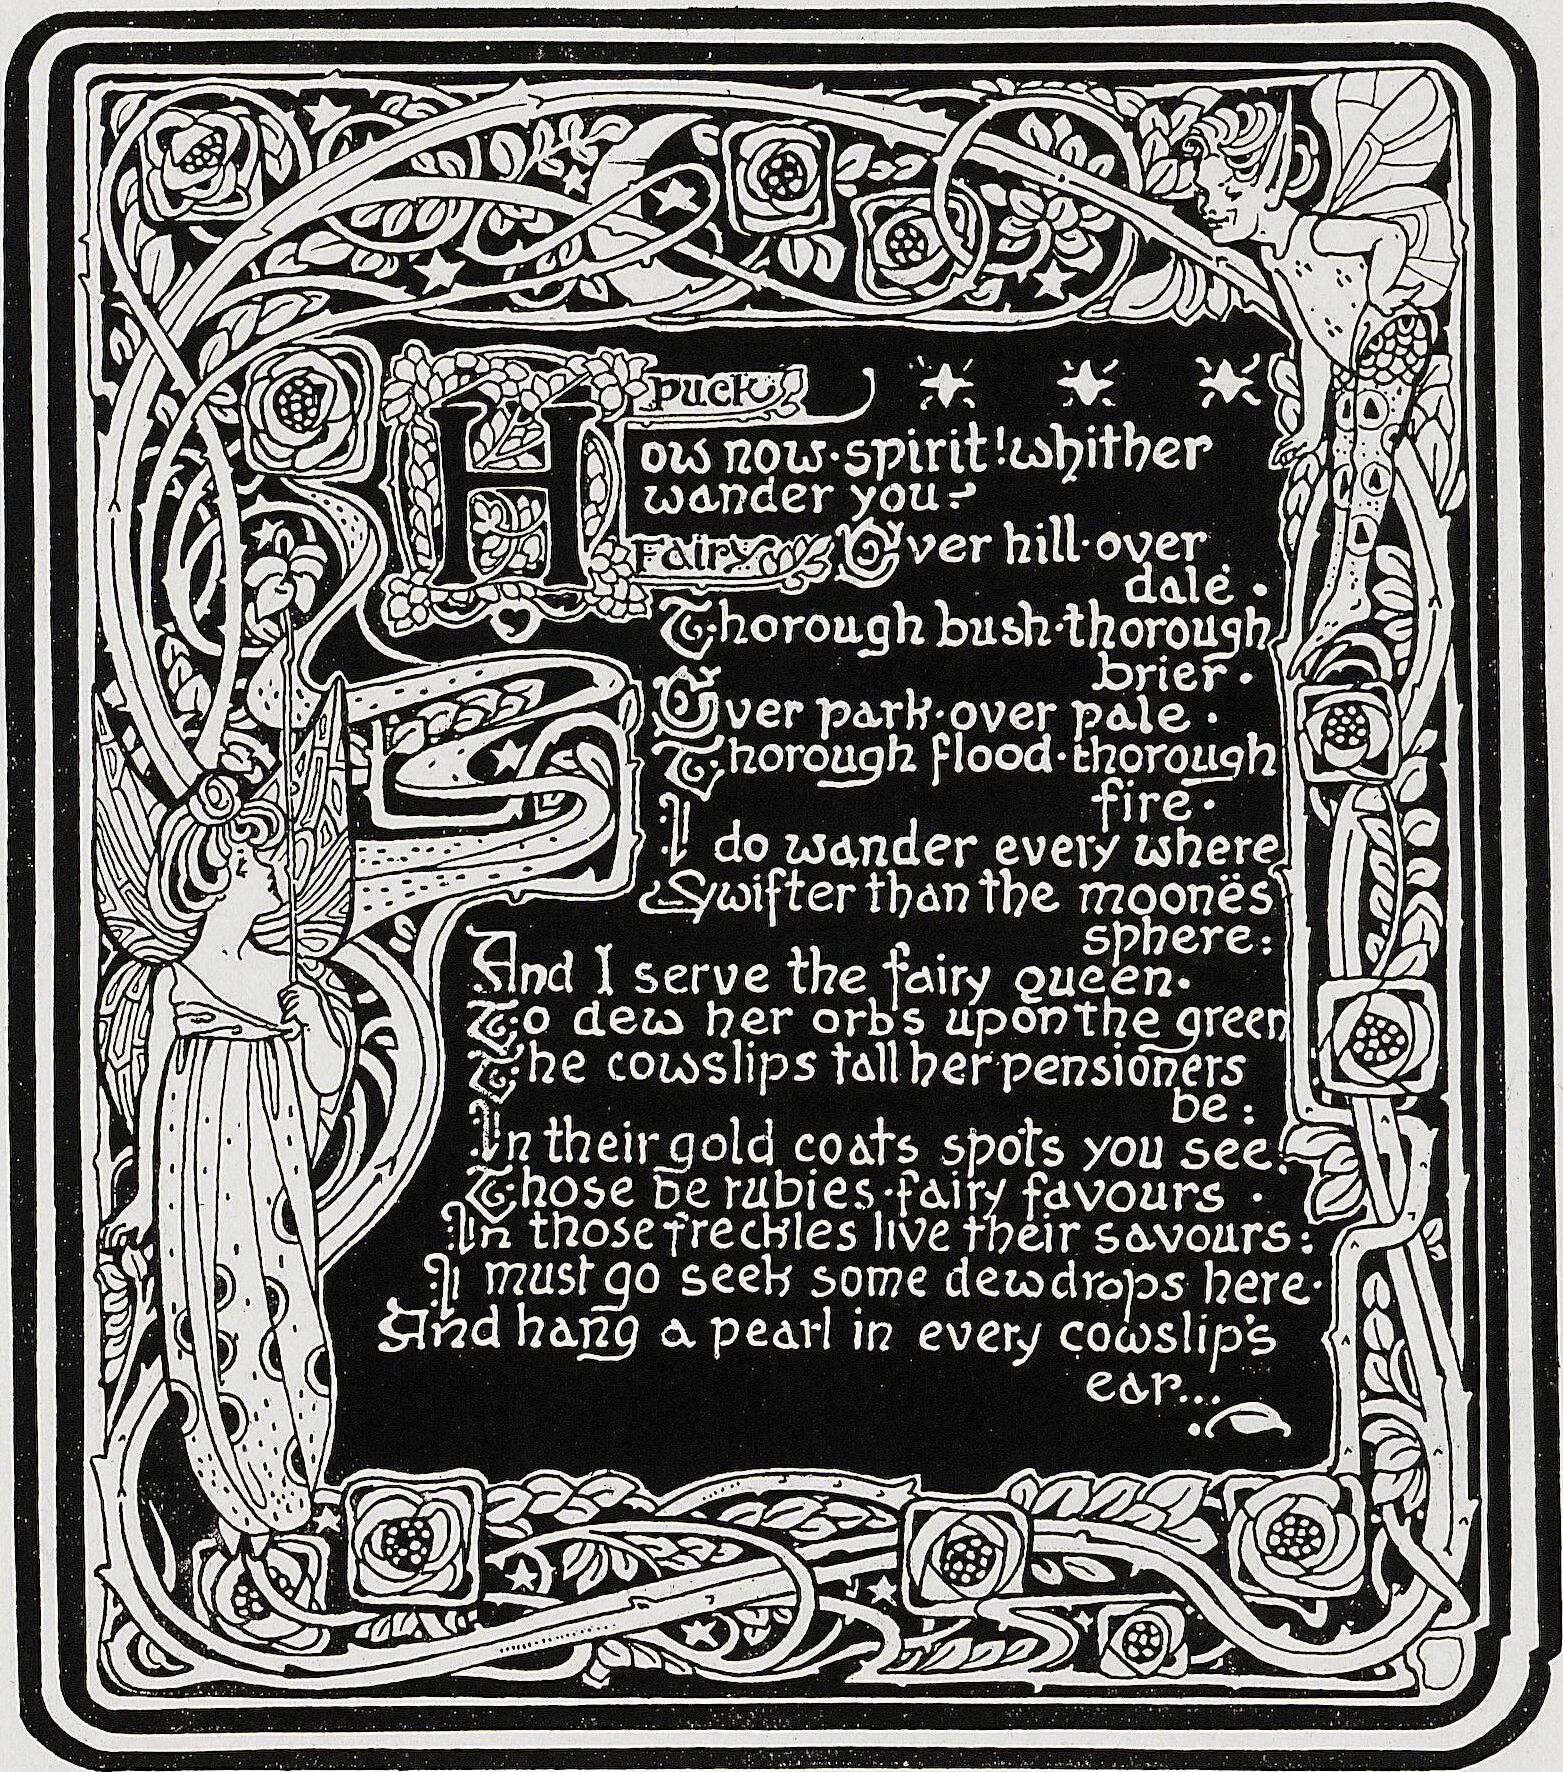 Puck
How now·spirit! whither
wander you?
Fairy Over hill·over
dale·
Thorough bush·thorough
brier·
Over park·over pale·
Thorough flood·thorough
fire·
I do wander every where
Swifter than the moonës
sphere:
And I serve the fairy queen·
To dew her orbs upon the green
The cowslips tall her pensioners
be:
In their gold coats spots you see:
Those be rubies·fairy favours·
In those freckles live their savours:
I must go seek some dewdrops here·
And hang a pearl in every cowslip's
ear...